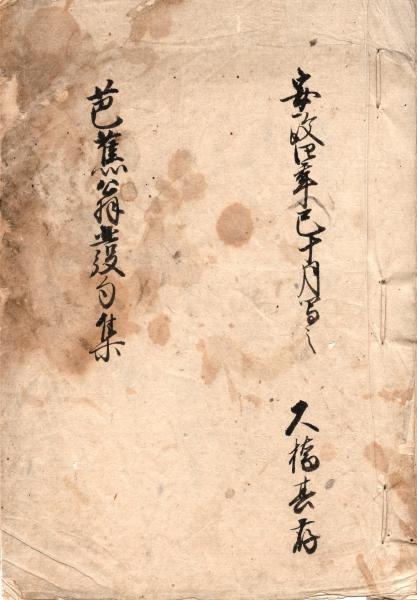 安政四年巳十月写之
大橋其存
芭蕉翁發句集